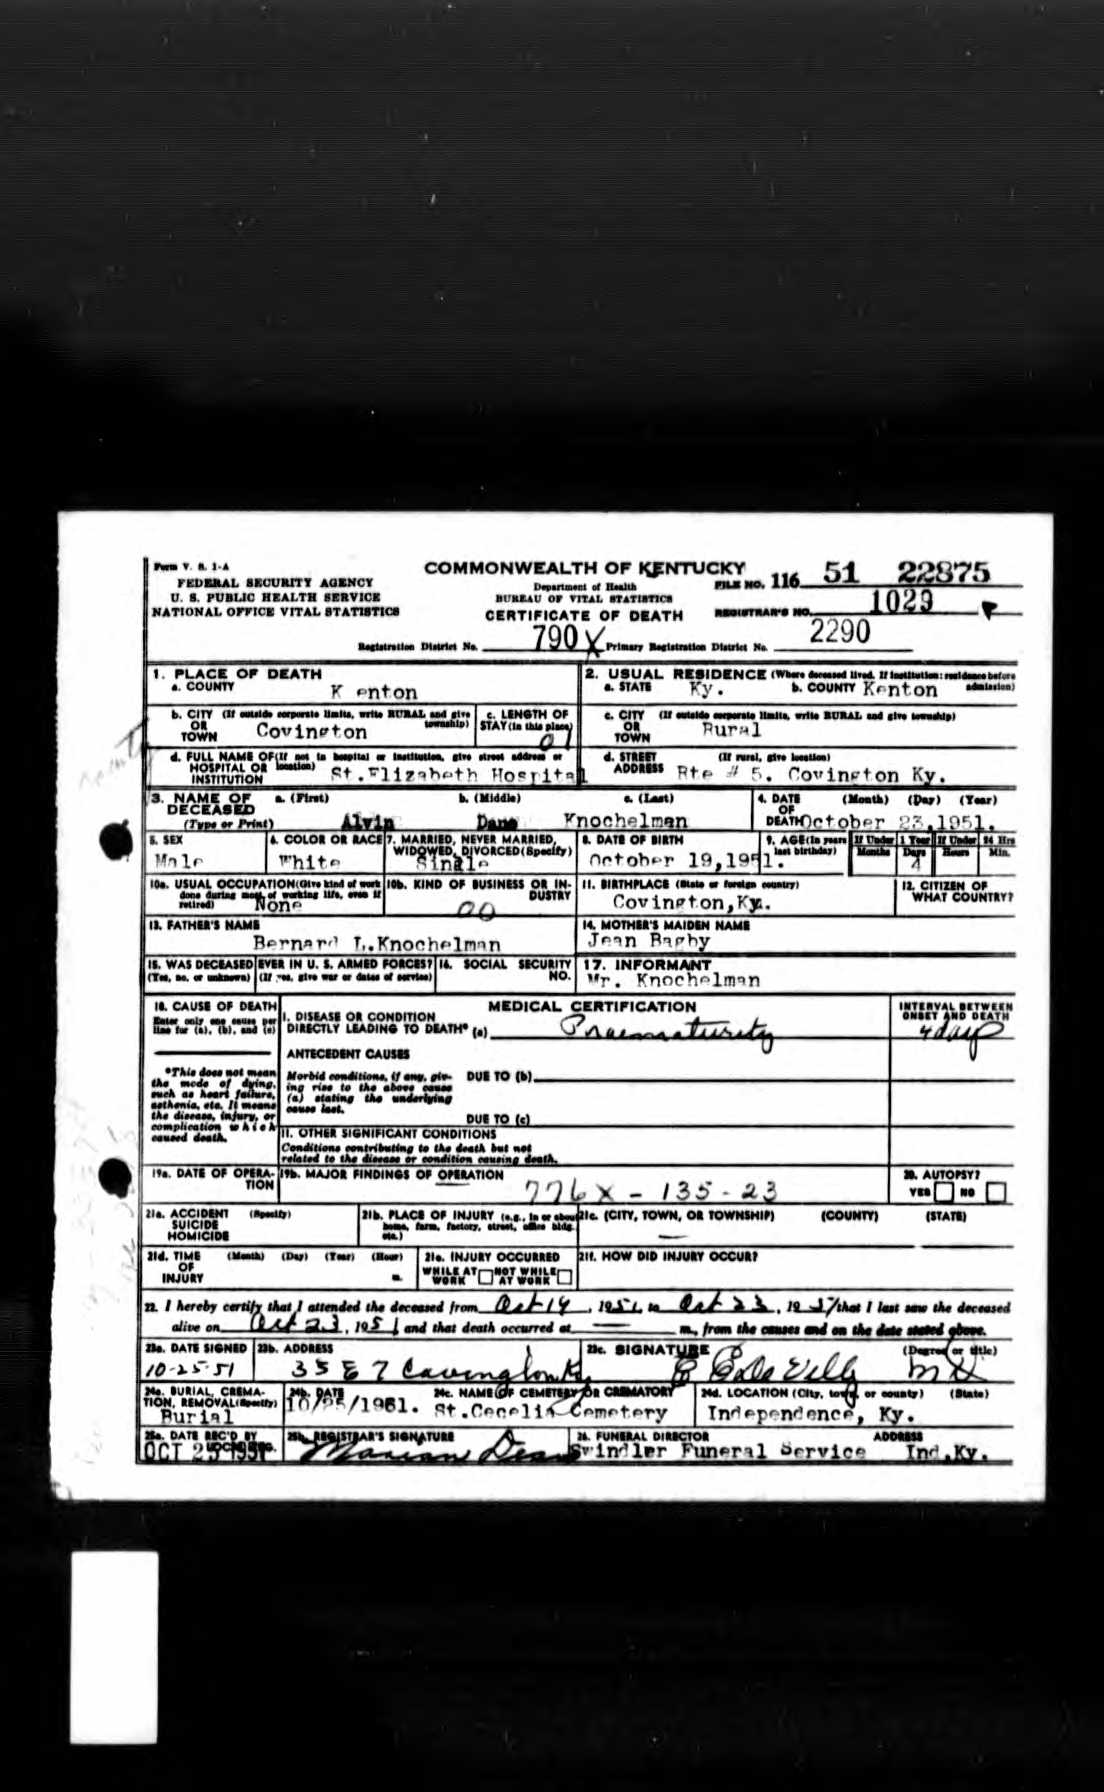 Form V. S. 1-A
FEDERAL SECURITY AGENCY
U. S. PUBLIC HEALTH SERVICE
NATIONAL OFFICE VITAL STATISTICS
COMMONWEALTH OF KENTUCKY
Department of Health
BUREAU OF VITAL STATISTICS
CERTIFICATE OF DEATH
FILE NO. 116 51 22875
REGISTRAR'S NO. 1029
Registration District No. 790 X Primary Registration District No. 2290
1. PLACE OF DEATH
a. COUNTY K enton
2. USUAL RESIDENCE (Where deceased lived. If institution: residence before admission)
a. STATE Ky. b. COUNTY Kenton
b. CITY (If outside corporate limits, write RURAL and give township)
OR
TOWN Covington
c. LENGTH OF
STAY (in this place)
01
c. CITY (If outside corporate limits, write RURAL and give township)
OR
TOWN Rural
d. FULL NAME OF (If not in hospital or institution, give street address or location)
HOSPITAL OR
INSTITUTION St.Elizabeth Hospital
d. STREET (If rural, give location)
ADDRESS Rte # 5. Covington Ky.
3. NAME OF DECEASED
(Type or Print)
a. (First) b. (Middle) c. (Last)
Alvin Dane Knochelman
4. DATE OF DEATH (Month) (Day) (Year)
October 23,1951.
5. SEX
Male
6. COLOR OR RACE
White
7. MARRIED, NEVER MARRIED,
WIDOWED, DIVORCED (Specify)
Single
8. DATE OF BIRTH
October 19,1951.
9. AGE (In years last birthday)
If Under 1 Year
Months Days
4
If Under 24 Hrs
Hours Min.
10a. USUAL OCCUPATION (Give kind of work
done during most of working life, even if
retired) None
10b. KIND OF BUSINESS OR INDUSTRY
00
11. BIRTHPLACE (State or foreign country)
Covington,Ky.
12. CITIZEN OF
WHAT COUNTRY?
13. FATHER'S NAME
Bernard L.Knochelman
14. MOTHER'S MAIDEN NAME
Jean Bagby
15. WAS DECEASED EVER IN U. S. ARMED FORCES?
(Yes, no, or unknown) (If yes, give war or dates of service)
16. SOCIAL SECURITY
NO.
17. INFORMANT
Mr. Knochelman
18. CAUSE OF DEATH
Enter only one cause per
line for (a), (b), and (c)
*This does not mean
the mode of dying,
such as heart failure,
asthenia, etc. It means
the disease, injury, or
complication which
caused death.
MEDICAL CERTIFICATION
I. DISEASE OR CONDITION
DIRECTLY LEADING TO DEATH* (a) Praematurity
INTERVAL BETWEEN
ONSET AND DEATH
4 days
ANTECEDENT CAUSES
Morbid conditions, if any, giv-
ing rise to the above cause
(a) stating the underlying
cause last.
DUE TO (b)
DUE TO (c)
II. OTHER SIGNIFICANT CONDITIONS
Conditions contributing to the death but not
related to the disease or condition causing death.
19a. DATE OF OPERA-
TION
19b. MAJOR FINDINGS OF OPERATION
776X - 135 - 23
20. AUTOPSY?
YES NO
21a. ACCIDENT (Specify)
SUICIDE
HOMICIDE
21b. PLACE OF INJURY (e.g., in or about
home, farm, factory, street, office bldg.
etc.)
21c. (CITY, TOWN, OR TOWNSHIP) (COUNTY) (STATE)
21d. TIME (Month) (Day) (Year) (Hour)
OF
INJURY m.
21e. INJURY OCCURRED
WHILE AT WORK NOT WHILE AT WORK
21f. HOW DID INJURY OCCUR?
22. I hereby certify that I attended the deceased from Oct 19, 1951, to Oct 23, 1951 that I last saw the deceased
alive on Oct 23, 1951 and that death occurred at — m., from the causes and on the date stated above.
23a. DATE SIGNED
10-25-51
23b. ADDRESS
35 E 7 Covington Ky.
23c. SIGNATURE (Degree or title)
MD
24a. BURIAL, CREMA-
TION, REMOVAL (Specify)
Burial
24b. DATE
10/25/1951.
24c. NAME OF CEMETERY OR CREMATORY
St.Cecelia Cemetery
24d. LOCATION (City, town, or county) (State)
Independence, Ky.
25a. DATE REC'D BY
LOCAL REG.
OCT 25 1951
25b. REGISTRAR'S SIGNATURE
Marian Dean
26. FUNERAL DIRECTOR ADDRESS
Swindler Funeral Service Ind.Ky.